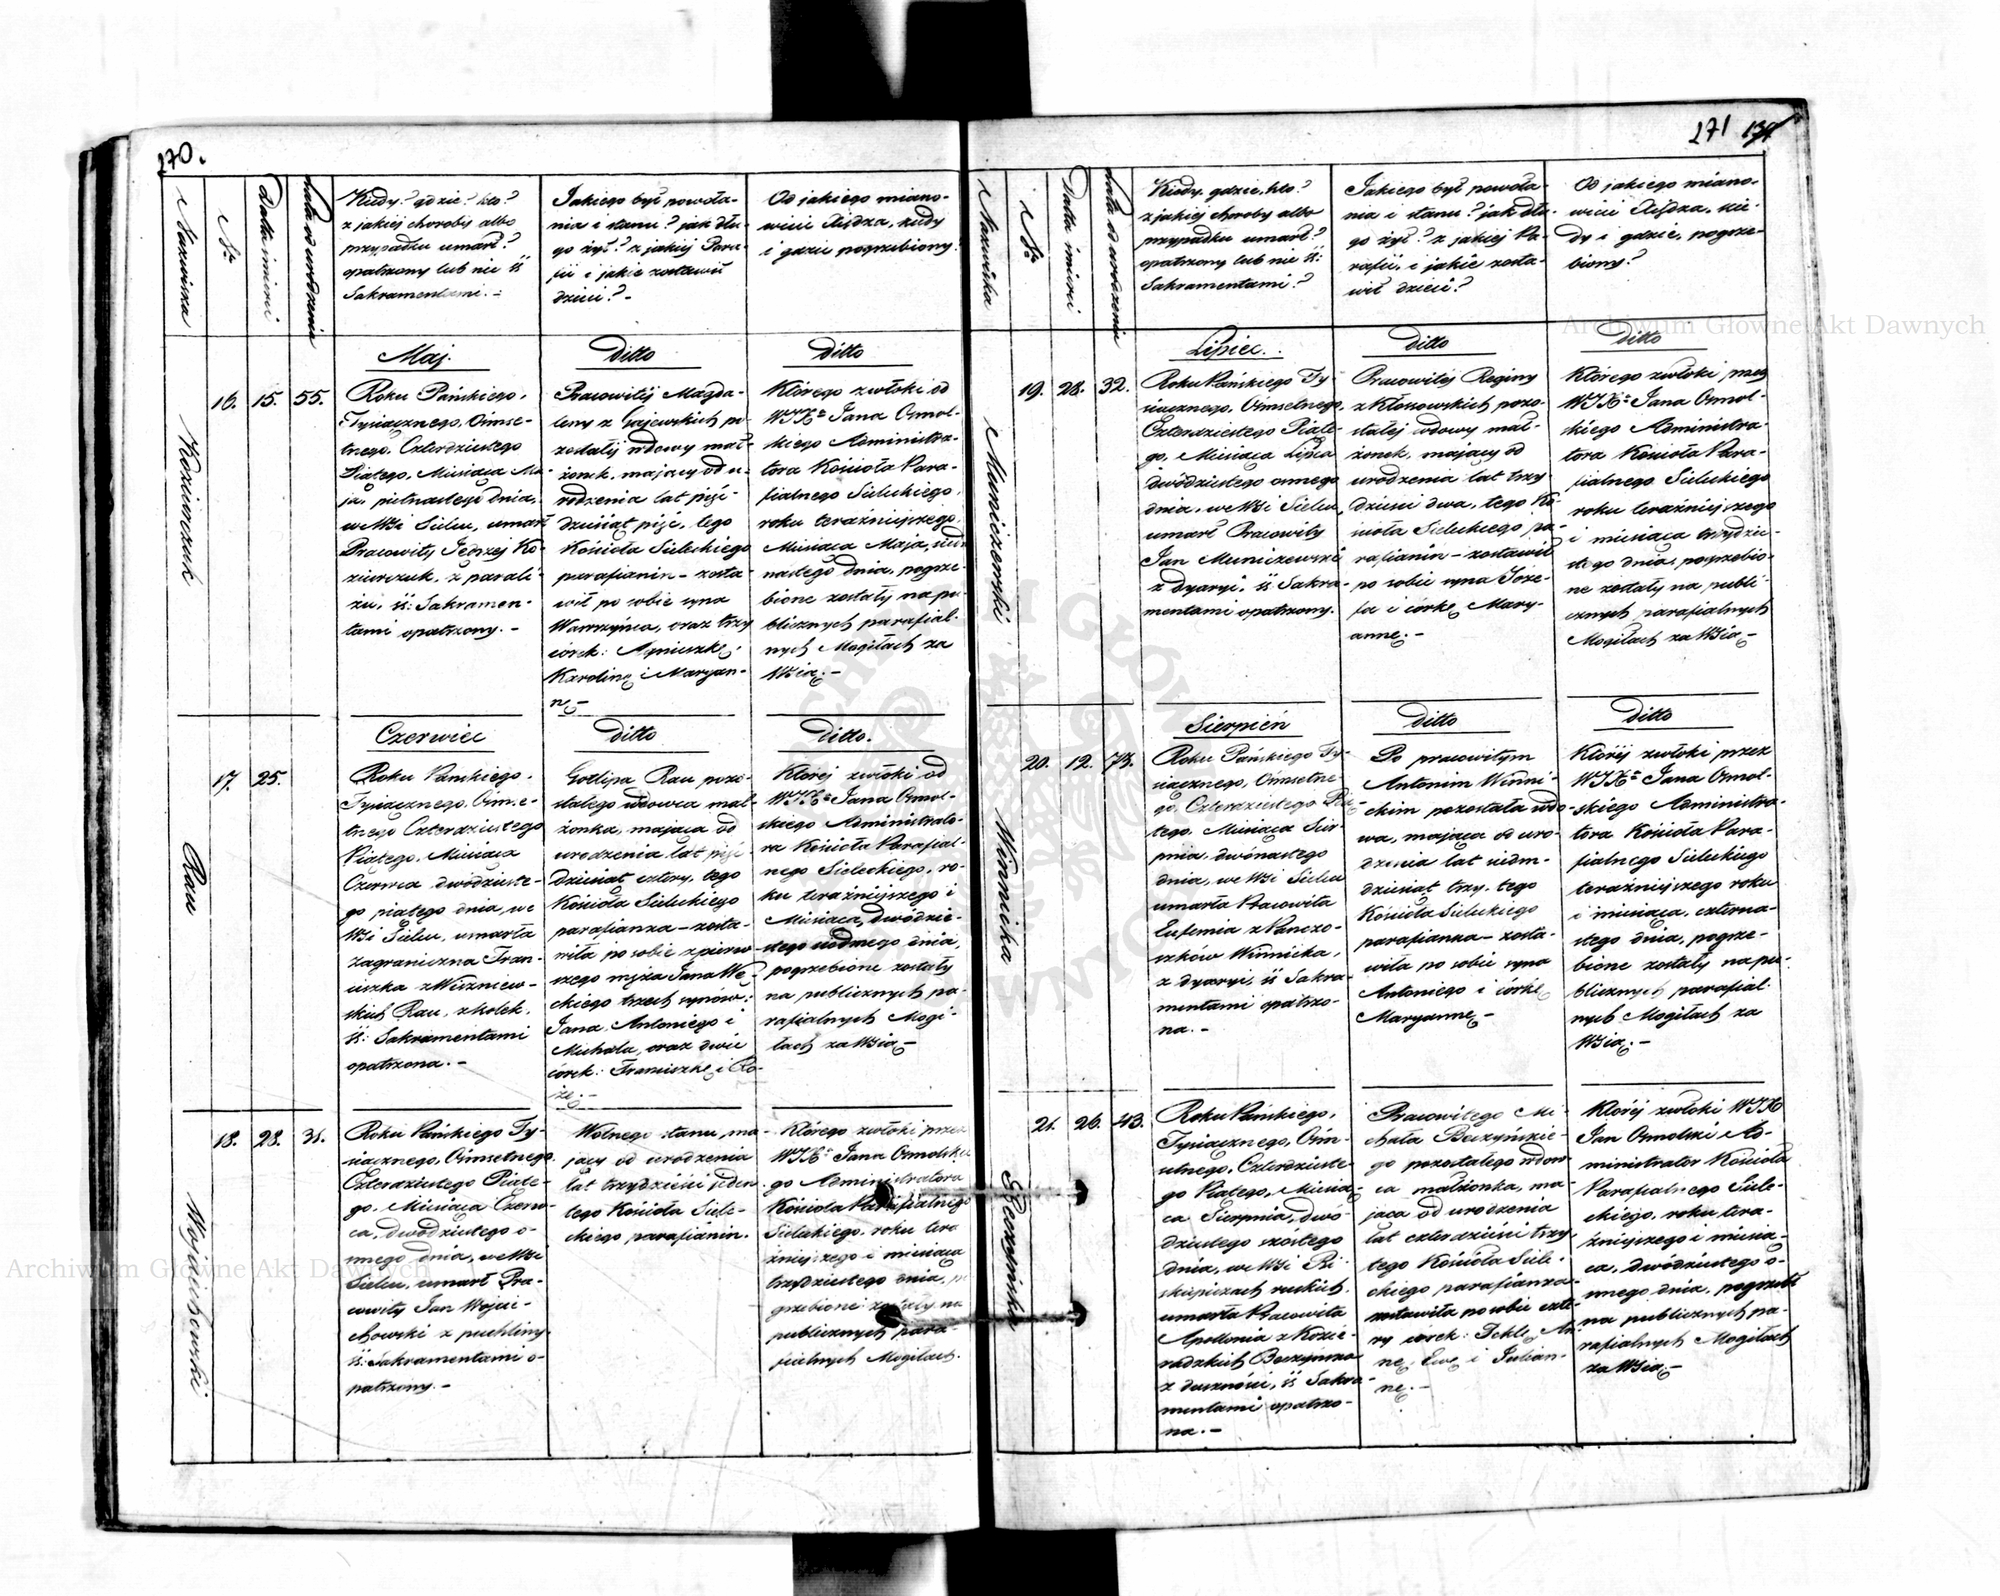 270.
Nazwiska
Nr
Datta śmierci
Lata od urodzenia
Kiedy? gdzie? kto?
z jakiej choroby albo
przypadku umarł?
opatrzony lub nie śś
Sakramentami. -
Jakiego był powoła-
nia i stanu? jak dłu-
go żył? z jakiej Para-
fii i jakie zostawił
dzieci? -
Od jakiego miano-
wicie Xiędza, kiedy
i gdzie pogrzebiony?
Maj.
ditto
ditto
Kozieńczuk
16.
15.
55.
Roku Pańskiego,
Tysiącznego, Ośmse-
tnego, Czterdziestego
Piątego, Miesiąca Ma-
ja, pietnastego dnia,
we Wsi Sielcu, umarł
Pracowity Jędrzej Ko-
zieńczuk, z parali-
żu, śś: Sakramen-
tami opatrzony. -
Pracowitej Magda-
leny z Gajewskich po-
zostałej wdowy mał-
żonek, mający od u-
rodzenia lat pięć-
dziesiąt pięć, tego
Kościoła Sieleckiego
parafianin - zosta-
wił po sobie syna
Wawrzyńca, oraz trzy
córek: Agnieszkę,
Karolinę i Maryan-
nę. -
Którego zwłoki od
WJXa Jana Osmol-
skiego Administra-
tora Kościoła Para-
fialnego Sieleckiego,
roku teraźniejszego,
Miesiąca Maja, siedm-
nastego dnia, pogrze-
bione zostały na pu-
blicznych parafial-
nych Mogiłach za
Wsią. -
Czerwiec
ditto
ditto.
Rau
17.
25.
Roku Pańskiego,
Tysiącznego, Ośmse-
tnego Czterdziestego
Piątego, Miesiąca
Czerwca dwódzieste-
go piątego dnia, we
Wsi Sielcu, umarła
zagraniczna Fran-
ciszka z Wiszniew-
skich Rau, z kolek,
śś: Sakramentami
opatrzona. -
Gotlipa Rau pozo-
stałego wdowca mał-
żonka, mająca od
urodzenia lat pięć-
dziesiąt cztery, tego
Kościoła Sieleckiego
parafianka - zosta-
wiła po sobie z pierw-
szego męża Jana We-
ckiego trzech synów:
Jana, Antoniego i
Michała, oraz dwie
córek: Franciszkę i Ro-
żę. -
Której zwłoki od
WJXa Jana Osmol-
skiego Administrato-
ra Kościoła Parafial-
nego Sieleckiego, ro-
ku teraźniejszego i
Miesiąca, dwódzie-
stego siódmego dnia,
pogrzebione zostały
na publicznych pa-
rafialnych Mogi-
łach za Wsią -
Wojciechowski
18.
28.
31.
Roku Pańskiego Ty-
siącznego, Ośmsetnego
Czterdziestego Piąte-
go, Miesiąca Czerw-
ca, dwódziestego o-
smego dnia, we Wsi
Sielcu, umarł Pra-
cowity Jan Wojcie-
chowski z puchliny
śś: Sakramentami o-
patrzony. -
Wolnego stanu, ma-
jący od urodzenia
lat trzydzieści jeden
tego Kościoła Siele-
ckiego parafianin.
Którego zwłoki przez
WJXa Jana Osmolskie
go Administratora
Kościoła Parafialnego
Sieleckiego, roku tera
źniejszego i miesiąca
trzydziestego dnia, po
grzebione zostały na
publicznych para-
fialnych Mogiłach.
271
Nazwiska
Nr
Datta śmierci
Lata od urodzenia
Kiedy, gdzie, kto?
z jakiej choroby albo
przypadku umarł?
opatrzony lub nie śś:
Sakramentami?
Jakiego był powoła-
nia i stanu? jak dłu-
go żył? z jakiej Pa-
rafii, i jakie zosta-
wił dzieci?
Od jakiego miano-
wicie Xiędza, kie-
dy i gdzie, pogrze-
biony?
Lipiec.
ditto
ditto
Muniszewski
19.
28.
32.
Roku Pańskiego Ty-
siącznego, Ośmsetnego,
Czterdziestego Piąte-
go, Miesiąca Lipca
dwódziestego osmego
dnia, we Wsi Sielcu,
umarł Pracowity
Jan Muniszewski
z dyaryi, śś Sakra-
mentami opatrzony.
Pracowitej Reginy
z Kłosowskich pozo-
stałej wdowy mał-
żonek, mający od
urodzenia lat trzy-
dzieści dwa, tego Ko-
ścioła Sieleckiego pa-
rafianin - zostawił
po sobie syna Józe-
fa i córkę Mary-
annę. -
Którego zwłoki przez
WJXa Jana Osmol-
skiego Administra-
tora Kościoła Para-
fialnego Sieleckiego
roku teraźniejszego
i miesiąca trzydzie-
stego dnia, pogrzebio-
ne zostały na publi-
cznych parafialnych
Mogiłach za Wsią -
Sierpień
ditto
ditto
Winnicka
20.
12.
73.
Roku Pańskiego Ty-
siącznego, Ośmsetne
go, Czterdziestego Pią-
tego, Miesiąca Sier-
pnia, dwónastego
dnia, we Wsi Sielcu
umarła Pracowita
Eufemia z Panczo-
szków Winnicka,
z dyaryi, śś Sakra-
mentami opatrzo-
na. -
Po pracowitym
Antonim Winni-
ckim pozostała wdo-
wa, mająca od uro-
dzenia lat siedm-
dziesiąt trzy, tego
Kościoła Sieleckiego
parafianka - zosta-
wiła po sobie syna
Antoniego i córkę
Maryannę -
Której zwłoki przez
WJXa Jana Osmol-
skiego Administra-
tora Kościoła Para-
fialnego Sieleckiego
teraźniejszego roku
i miesiąca, czterna-
stego dnia, pogrze-
bione zostały na pu-
blicznych parafial-
nych Mogiłach za
Wsią. -
Boczyńska
21.
26.
43.
Roku Pańskiego,
Tysiącznego, Ośm-
setnego, Czterdzieste-
go Piątego, Miesią-
ca Sierpnia, dwó-
dziestego szóstego
dnia, we Wsi Bi-
skupiczach ruskich,
umarła Pracowita
Apolonia z Kozie-
radzkich Boczyńska
z duszności, śś Sakra-
mentami opatrzo-
na. -
Pracowitego Mi-
chała Boczyńskie-
go pozostałego wdow-
ca małżonka, ma-
jąca od urodzenia
lat czterdzieści trzy,
tego Kościoła Siele-
ckiego parafianka-
zostawiła po sobie czte-
ry córek: Teklę, An-
nę, Ewę i Julian-
nę. -
Której zwłoki WJX
Jan Osmolski Ad-
ministrator Kościoła
Parafialnego Siele-
ckiego, roku tera-
źniejszego i miesią-
ca, dwódziestego o-
smego dnia, pogrzebł
na publicznych pa-
rafialnych Mogiłach
za Wsią -
Archiwum Główne Akt Dawnych
Archiwum Główne Akt Dawnych